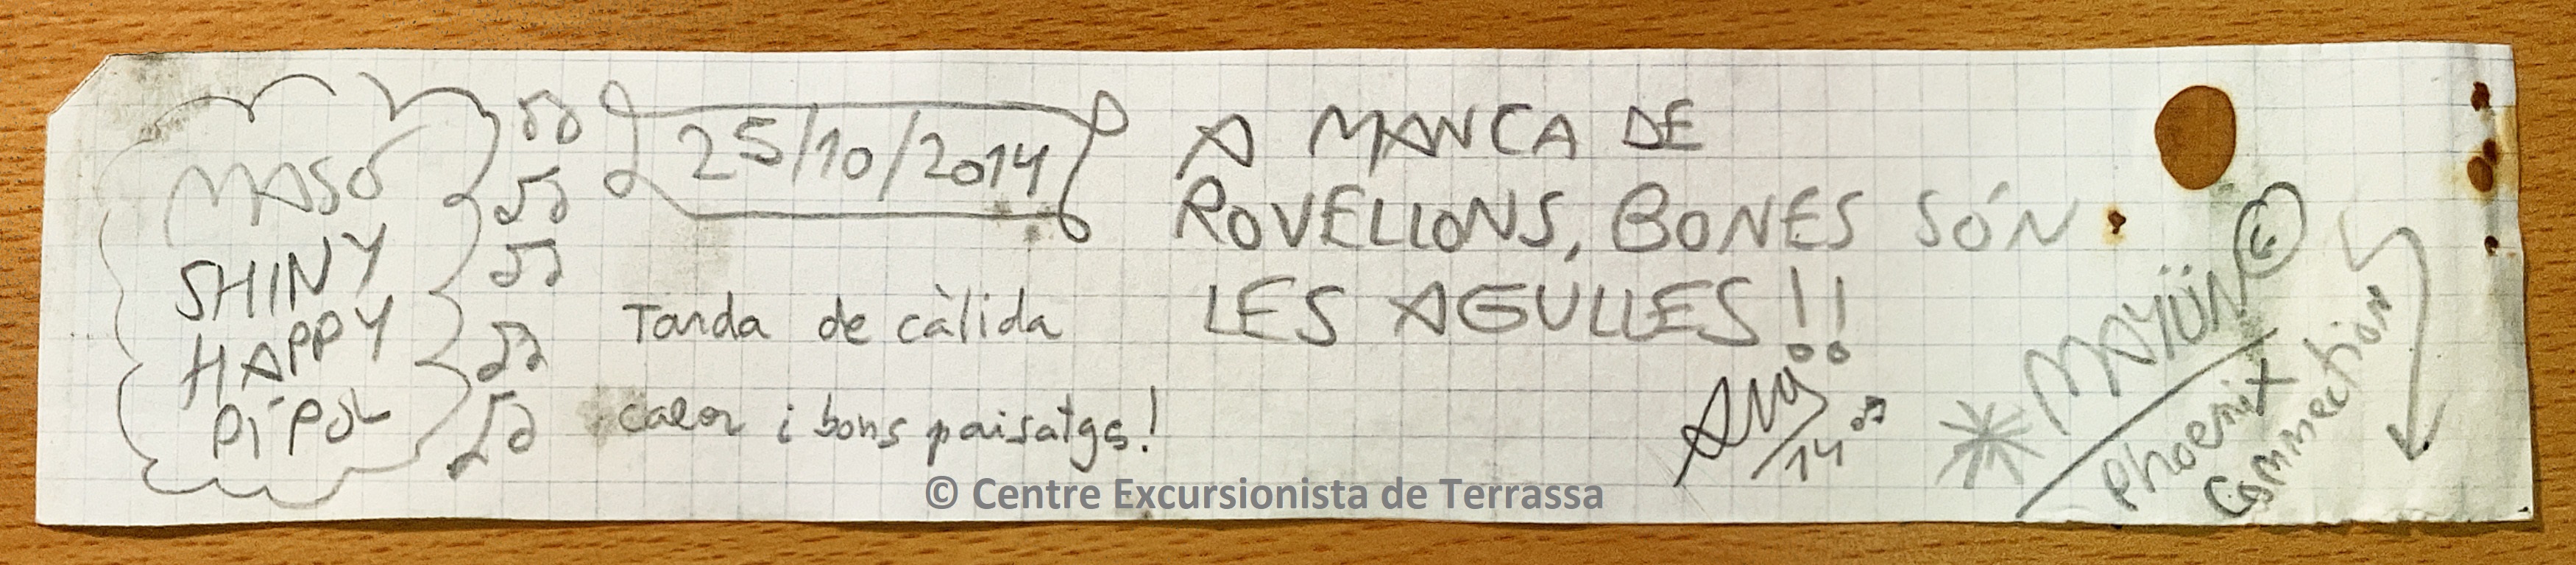 MASÓ
SHINY
HAPPY
PÍPOL
25/10/2014
Tarda de càlida
calor i bons paisatgs!
A MANCA DE
ROVELLONS, BONES SÓN
LES AGULLES!!
/14
MAYÜN
Phoenix
Connection
© Centre Excursionista de Terrassa